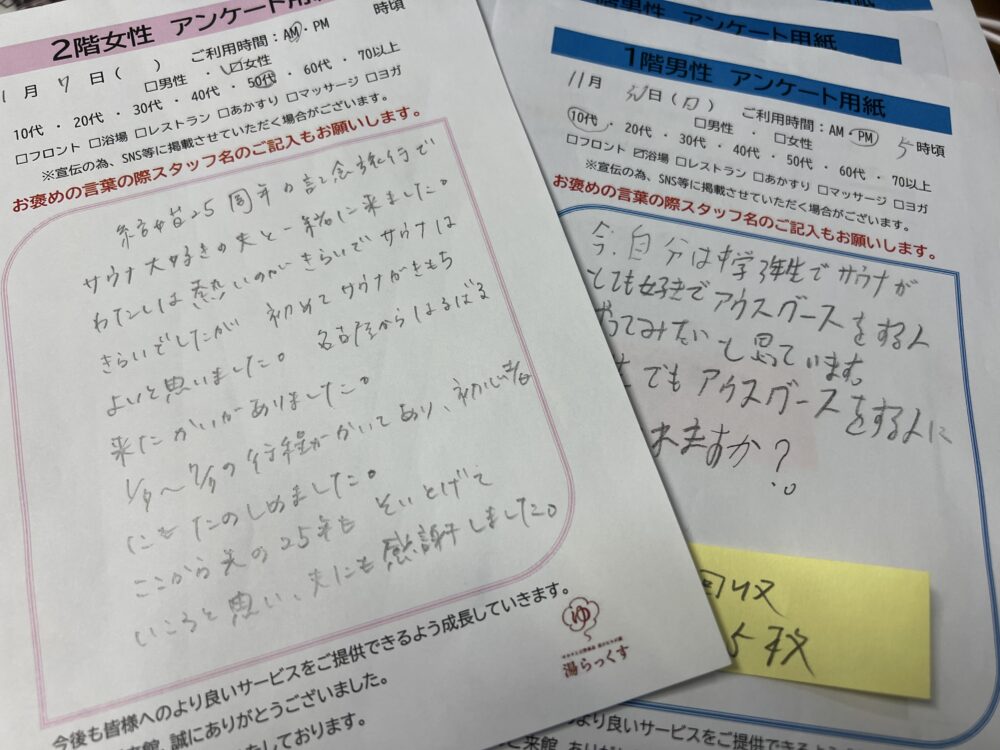 2階女性 アンケート用紙
月 7 日( ) ご利用時間:AM・PM 時頃
□男性 ・ ☑女性
10代 ・ 20代 ・ 30代 ・ 40代 ・ 50代 ・ 60代 ・ 70以上
□フロント □浴場 □レストラン □あかすり □マッサージ □ヨガ
※宣伝の為、SNS等に掲載させていただく場合がございます。
お褒めの言葉の際スタッフ名のご記入もお願いします。
結婚25周年の記念旅行で
サウナ大好きの夫と一緒に来ました。
わたしは熱いのがきらいでサウナは
きらいでしたが 初めてサウナがきもち
よいと思いました。 名古屋からはるばる
来たかいがありました。
の行程がかいてあり、初心者
にもたのしめました。
ここから先の25年も そいとげて
いこうと思い、夫にも感謝しました。
今後も皆様へのより良いサービスをご提供できるよう成長していきます。
来館、誠にありがとうございました。
しております。
ゆ
湯らっくす
階男性 アンケート用紙
アンケート用紙
1階男性 アンケート用紙
11月 日(日) ご利用時間:AM・PM 5時頃
□男性 ・ □女性
10代 ・ 20代 ・ 30代 ・ 40代 ・ 50代 ・ 60代 ・ 70以上
□フロント ☑浴場 □レストラン □あかすり □マッサージ □ヨガ
※宣伝の為、SNS等に掲載させていただく場合がございます。
お褒めの言葉の際スタッフ名のご記入もお願いします。
今、自分は中学3年生でサウナが
とても好きでアウスグースをする人
やってみたいと思っています。
でもアウスグースをする人に
れますか?
回収
より良いサービスをご提供できるよう成長していきま
ご来館、